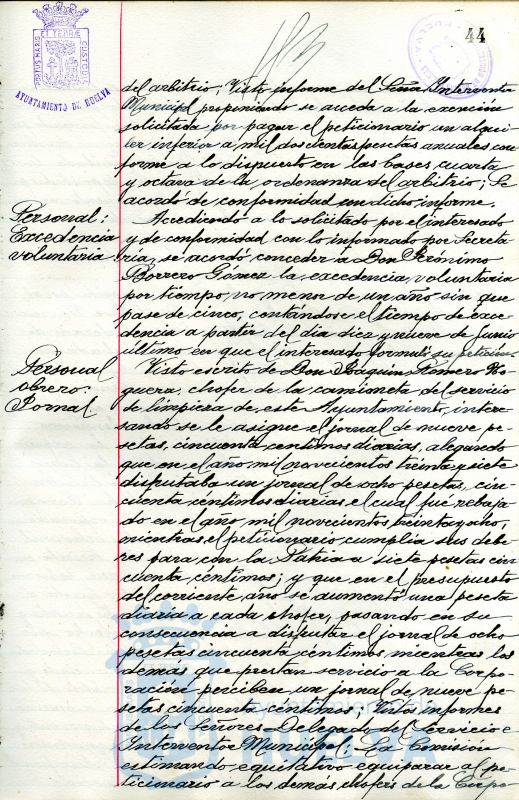 PORTUS MARIS ET TERRÆ CUSTODIA
AYUNTAMIENTO DE HUELVA
44
del arbitrio; Visto informe del Señor Interventor
Municipal proponiendo se acceda a la exención
solicitada por pagar el peticionario un alqui-
ler inferior a mil doscientas pesetas anuales con-
forme a lo dispuesto en las bases cuarta
y octava de la ordenanza del arbitrio; Se
acordó de conformidad con dicho informe.
Personal:
Excedencia
voluntaria
Accediendo a lo solicitado por el interesado
y de conformidad con lo informado por Secreta-
ria, se acordó conceder a Don Jerónimo
Borrero Gómez la excedencia voluntaria
por tiempo no menor de un año sin que
pase de cinco, contándose el tiempo de exce-
dencia a partir del día diez y nueve de Junio
último en que el interesado formuló su petición.
Personal
obrero.
Jornal
Visto escrito de Don Joaquín Romero No-
guera, chofer de la camioneta del servicio
de limpieza de este Ayuntamiento, intere-
sando se le asigne el jornal de nueve pe-
setas, cincuenta centimos diarias, alegando
que en el año mil novecientos treinta y siete
disfrutaba un jornal de ocho pesetas, cin-
cuenta centimos diarias el cual fué rebaja-
do en el año mil novecientos treinta y ocho,
mientras el peticionario cumplia sus debe-
res para con la Patria a siete pesetas cin-
cuenta centimos; y que en el presupuesto
del corriente año se aumentó una peseta
diaria a cada chofer, pasando en su
consecuencia a disfrutar el jornal de ocho
pesetas cincuenta céntimos, mientras los
demás que prestan servicio a la Corpo-
ración perciben un jornal de nueve pe-
setas cincuenta centimos; Visto informes
de los Señores Delegado del Servicio e
Interventor Municipal; La Comisión
estimando equitativo equiparar al pe-
ticionario a los demás chofers de la Corpo-
Ayuntamiento de
HUELVA